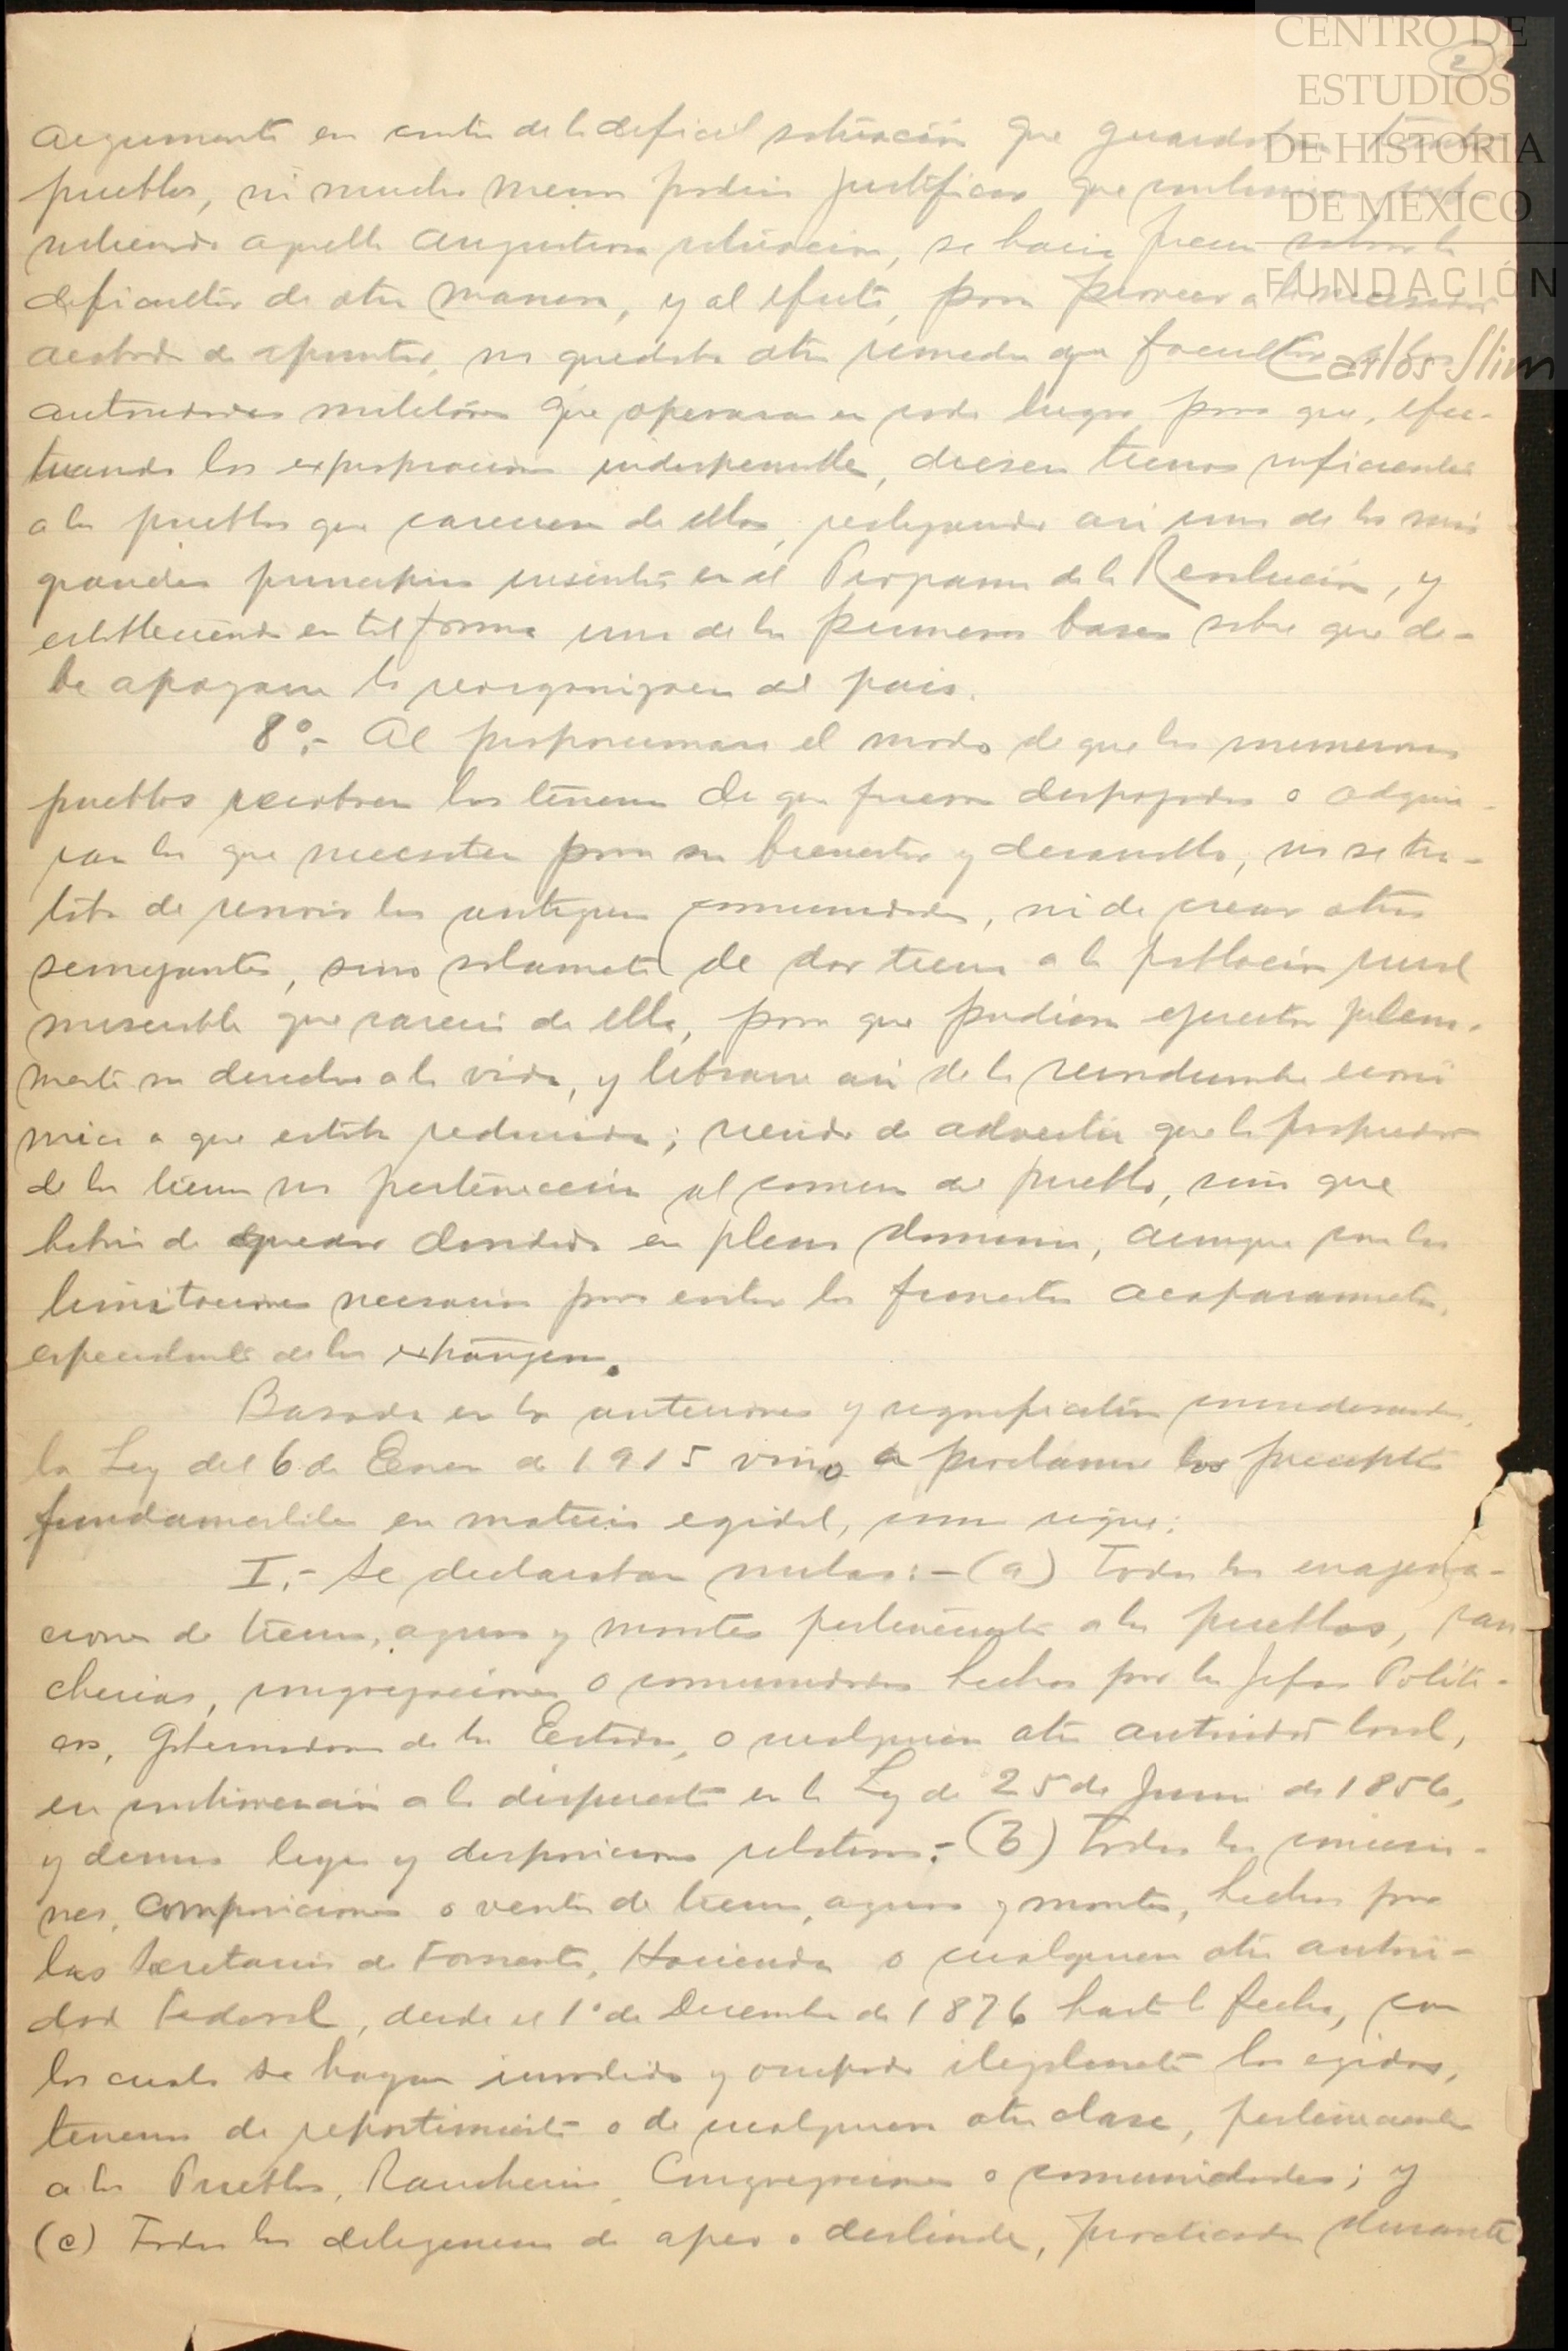 CENTRO DE
ESTUDIOS
DE HISTORIA
DE MÉXICO
FUNDACIÓN
Carlos Slim
2
argumento en contra de la dificil situación que guardaban tantos
pueblos, ni mucho menos podia justificar que continuara sub-
sistiendo aquella angustiosa situación, se hacia salvar la
dificultad de otra manera, y al efecto, para proveer a la necesidad
acabada de apuntar, no quedaba otro remedio que facultar a las
autoridades militares que operaran en cada lugar para que, efec-
tuando las expropiaciones indispensables, diesen tierras suficientes
a los pueblos que carecieran de ellas, realizando asi uno de los mas
grandes principios inscritos en el Programa de la Revolución, y
estableciendo en tal forma una de las primeras bases sobre que de-
be apoyarse la reorganizacion del pais.
8º.- Al proporcionarse el modo de que los numerosos
pueblos recobren los terrenos de que fueron despojados o adquie-
ran los que necesiten para su bienestar y desarrollo, no se tra-
taba de revivir las antiguas comunidades, ni de crear otras
semejantes, sino solamente de dar tierra a la población rural
miserable que carecia de ella, para que pudiera ejercitar plena-
mente su derecho a la vida, y librarse asi de la servidumbre econó
mica a que estaba reducida; siendo de advertir que la propiedad
de las tierras no pertenecería al comun del pueblo, sino que
habria de quedar dividida en pleno dominio, aunque con las
limitaciones necesarias para evitar los funestos acaparamientos,
especialmente de los extranjeros.
Basada en los anteriores y significativos considerandos,
la Ley del 6 de Enero de 1915 vino a proclamar los preceptos
fundamentales en materia egidal, como sigue:
I.- Se declaraban nulas:- (a) Todas las enagena-
ciones de tierras, aguas y montes pertenecientes a los pueblos, ran
cherias, congregaciones o comunidades hechas por los Jefes Politi-
cos, Gobernadores de los Estados, o cualquiera otra autoridad local,
en contravención a lo dispuesto en la Ley de 25 de Junio de 1856,
y demas leyes y disposiciones relativas.- (b) Todas las concesio-
nes, composiciones o ventas de tierras, aguas y montes, hechas por
las Secretarias de Fomento, Hacienda o cualquiera otra autori-
dad Federal, desde el 1º de Diciembre de 1876 hasta la fecha, con
las cuales se hayan invadido y ocupado ilegalmente los egidos,
terrenos de repartimiento o de cualquiera otra clase, pertenecientes
a los Pueblos, Rancherias, Congregaciones o comunidades; y
(c) Todas las diligencias de apeo o deslinde, practicadas durante